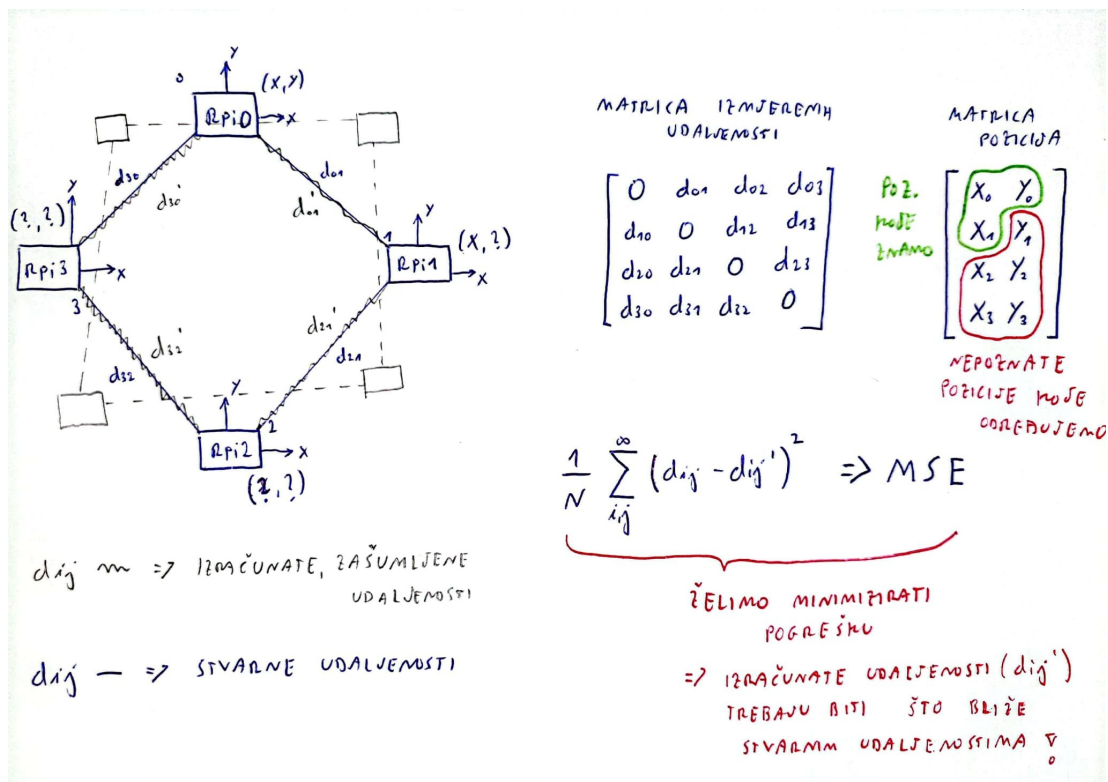 0
Y
(X,Y)
Rpi0
X
d30
d30'
d01
d01'
(?,?)
Y
Rpi3
X
3
1
Y
(X,?)
Rpi1
X
d32'
d32
d21'
d21
Y
2
Rpi2
X
(?,?)
dij => IZRAČUNATE, ZAŠUMLJENE
UDALJENOSTI
dij — => STVARNE UDALJENOSTI
MATRICA IZMJERENIH
UDALJENOSTI
0 d01 d02 d03
d10 0 d12 d13
d20 d21 0 d23
d30 d31 d32 0
MATRICA
POZICIJA
POZ.
KOJE
ZNAMO
X0 Y0
X1 Y1
X2 Y2
X3 Y3
NEPOZNATE
POZICIJE KOJE
ODREĐUJEMO
1/N ∞∑i,j (dij - dij')² => MSE
ŽELIMO MINIMIZIRATI
POGREŠKU
=> IZRAČUNATE UDALJENOSTI (dij')
TREBAJU BITI ŠTO BLIŽE
STVARNIM UDALJENOSTIMA !